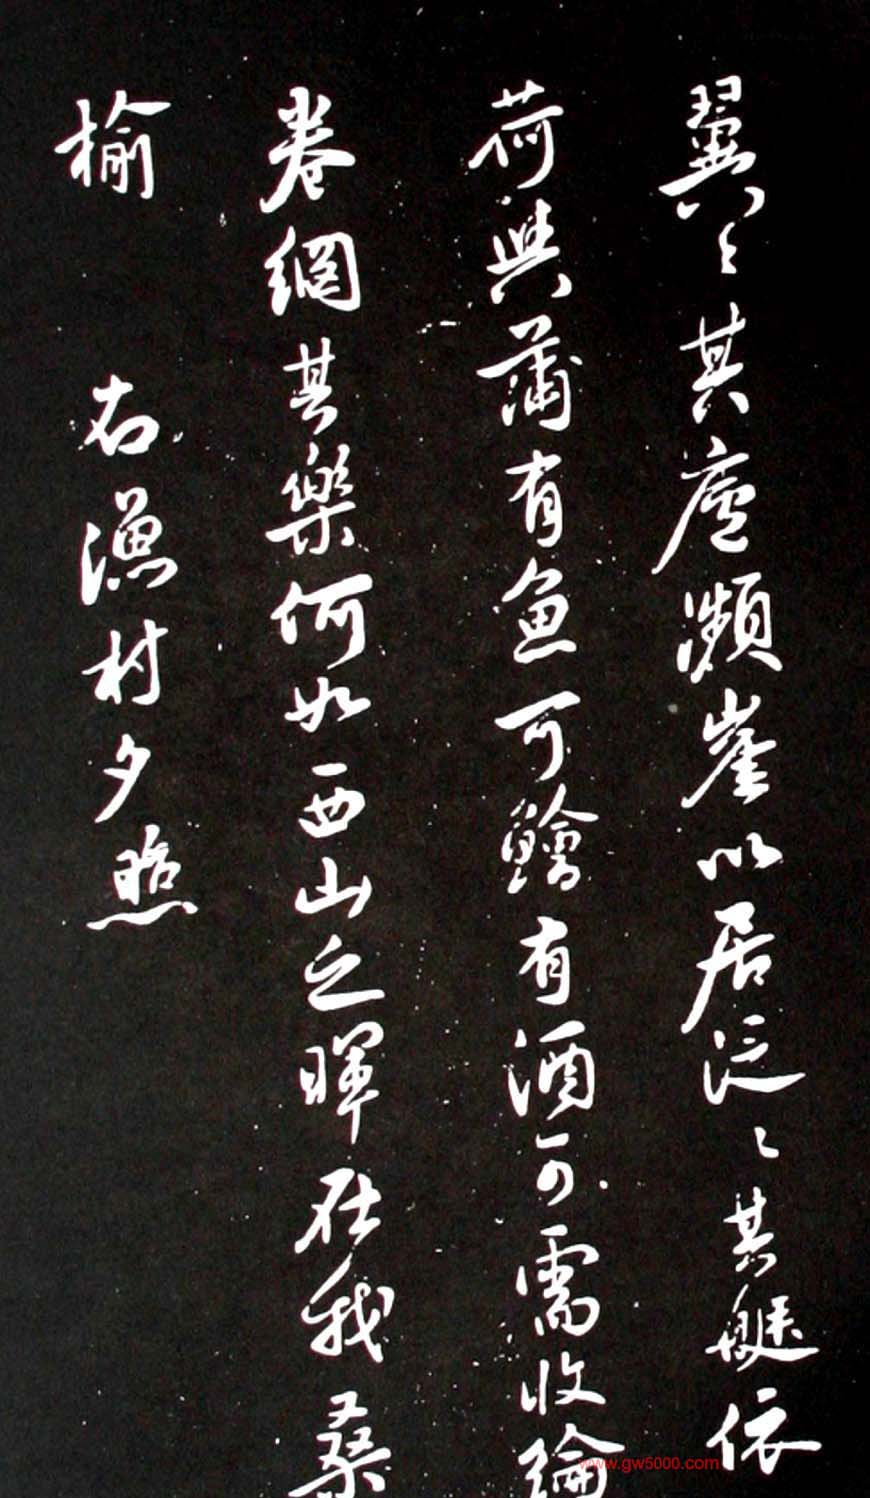 翼〻其廬瀕崖以居泛〻其艇依
荷與蒲有魚可鱠有酒可需收綸
卷網其樂何如西山之暉在我桑
榆 右漁村夕照
www.gw5000.com